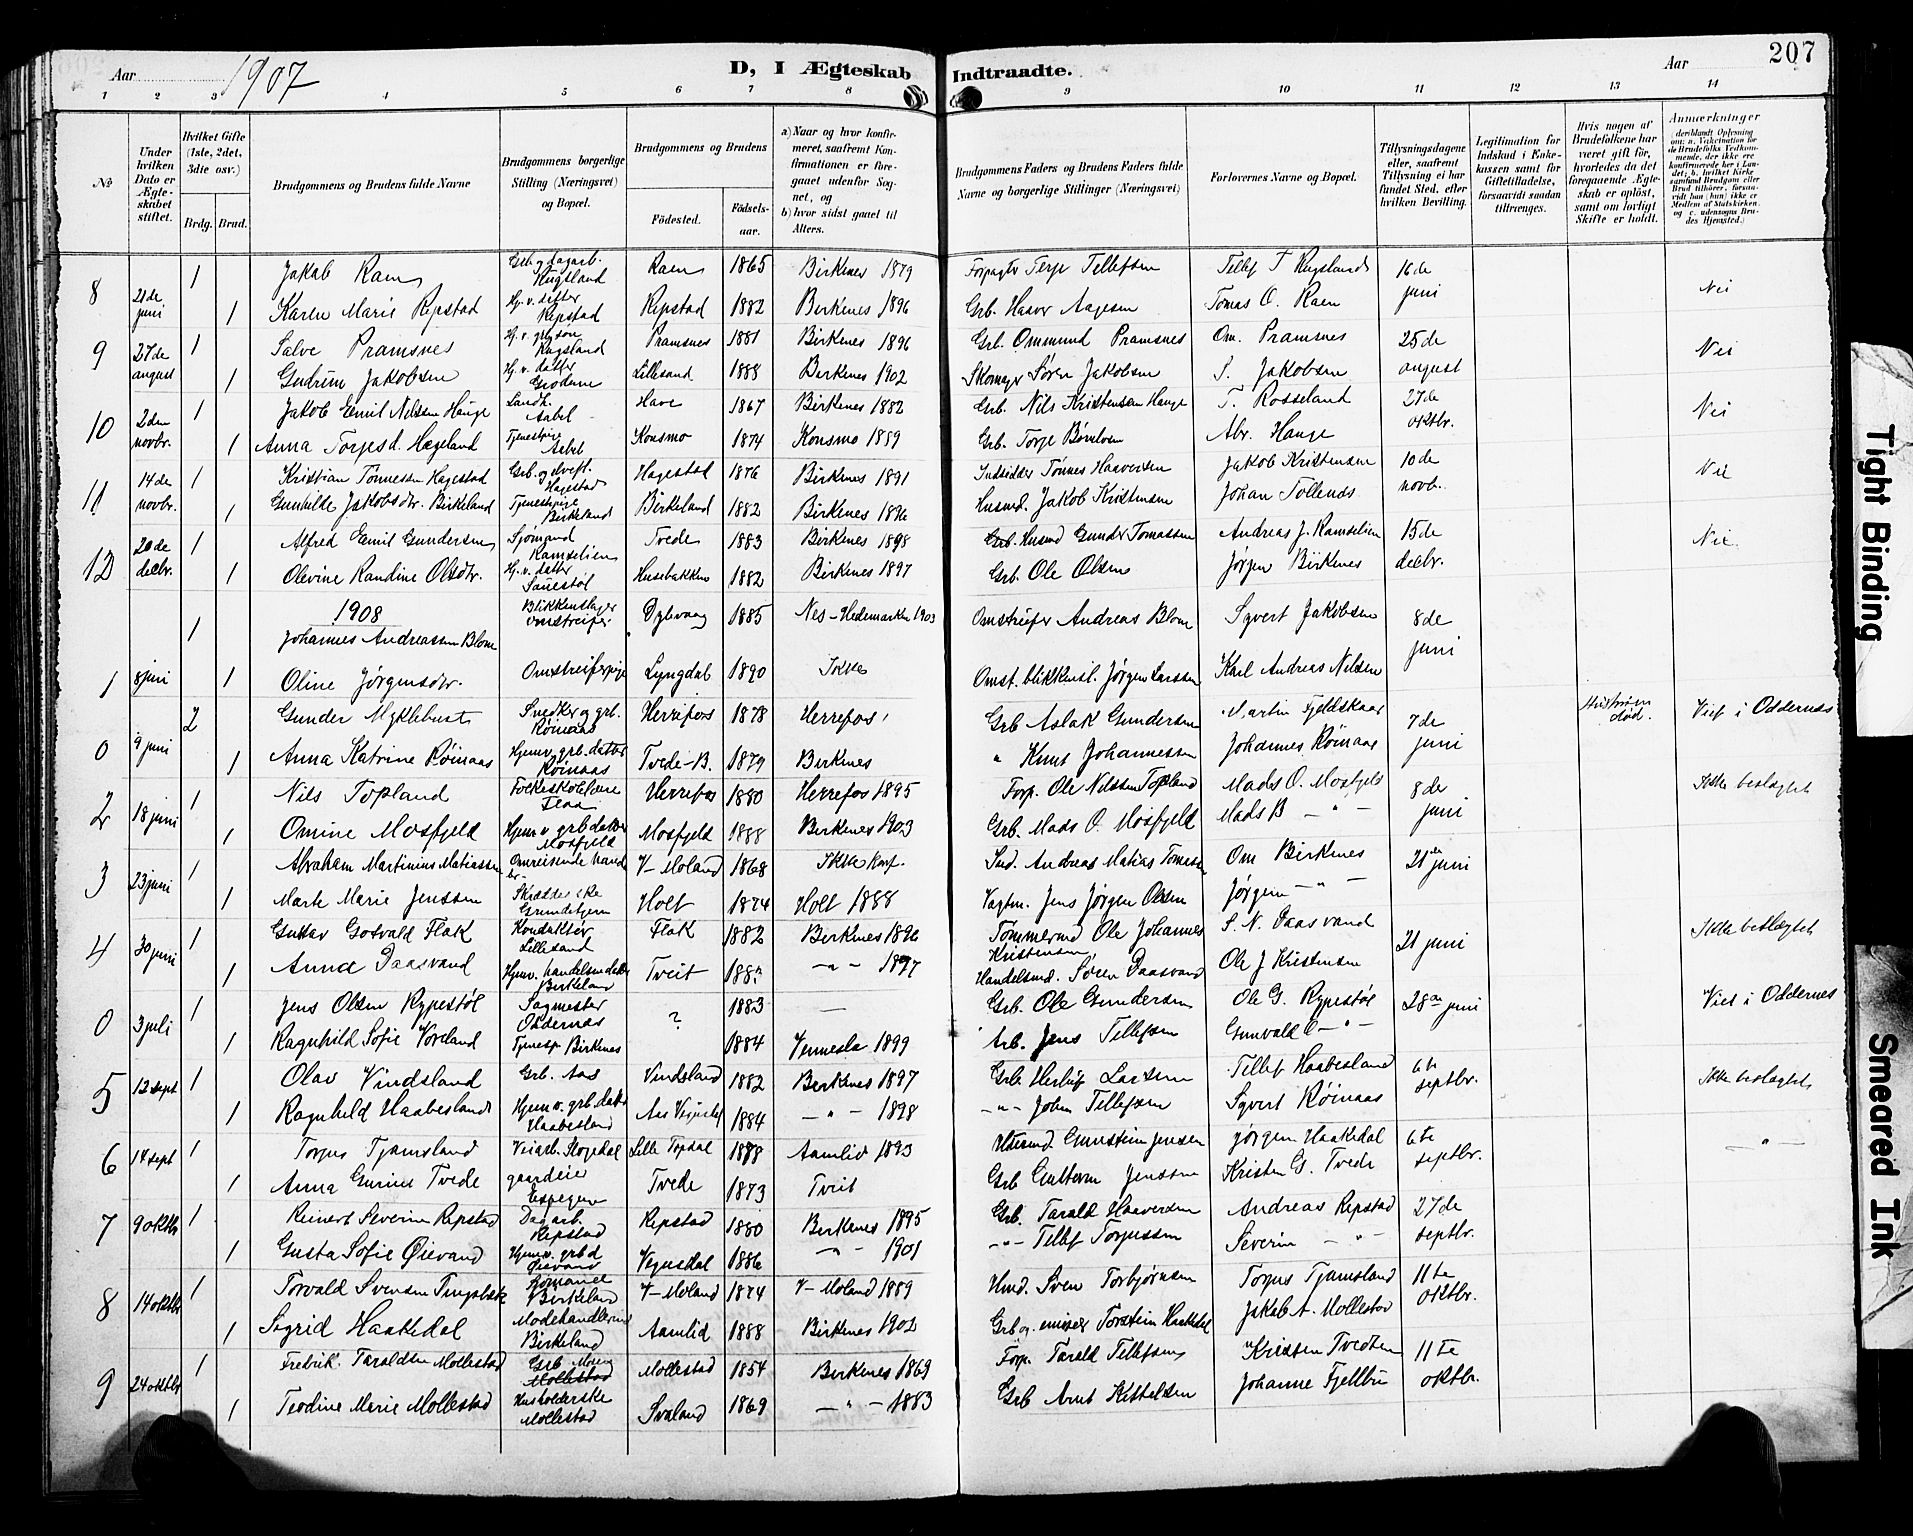 Aar 1907 D, I Ægteskab Indtraadte. Aar 207
1 2 3 4 5 6 7 8 9 10 11 12 13 14
No
Under hvilken Dato er Ægteskabet stiftet.
Hvilket Gifte (1ste, 2det, 3die osv.)
Brdg. Brud.
Brudgommens og Brudens fulde Navne
Brudgommens borgerlige Stilling (Næringsvei) og Bopæl.
Brudgommens og Brudens
Födested. Födsels-aar.
a) Naar og hvor konfirmeret, saafremt Konfirmationen er foregaaet udenfor Sognet, og
b) hvor sidst gaaet til Alters.
Brudgommens Faders og Brudens Faders fulde Navne og borgerlige Stillinger (Næringsvei)
Forlovernes Navne og Bopæl.
Tillysningsdagene eller, saafremt Tillysning ei har fundet Sted, efter hvilken Bevilling.
Legitimation for Indskud i Enkekassen samt for Giftetilladelse, forsaavidt saadan tiltrænges.
Hvis nogen af Brudefolkene har været gift før, hvorledes da det foregaaende Ægteskab er opløst, samt om lovligt Skifte er holdt.
Anmærkninger
8 21de juni 1 Jakob Raen Grb. og dagarb. Rugsland Raen 1865 Birkenes 1879 Forpagter Terje Tellefsen Tellef T. Rugsland 16de juni Nei
1 Karen Marie Repstad Hj. v. datter Repstad Repstad 1882 Birkenes 1896 Grb. Haavor Aagesen Tomas O. Raen
9 27de august 1 Salve Pramsnes Rugsland Pramsnes 1881 Birkenes 1896 Grb. Ommund Pramsnes Om. Pramsnes 25de august Nei
1 Gudrun Jakobsen Hj. v. datter Lillesand 1888 Birkenes 1902 Skomager Søren Jakobsen S. Jakobsen
10 2den novbr. 1 Jakob Emil Nilsen Hauge Landh. Aabel Have 1867 Birkenes 1882 Grb. Nils Kristensen Hauge T. Rosseland 27de oktbr. Nei
1 Anna Torjesd. Hægeland Tjenestpige Aabel Konsmo 1874 Konsmo 1889 Grb. Torje Abr. Hauge
11 14de novbr. 1 Kristian Tønnessen Hagestad Hagestad Hagestad 1876 Birkenes 1891 Indsidder Tønnes Haaversen Jakob Kristensen 10de novb. Nei
1 Gunhilde Jakobsdtr. Birkeland Tjenestpige Birkeland Birkeland 1882 Birkenes 1896 Husmd. Jakob Kristensen Johan Tollends
12 20de decbr. 1 Alfred Emil Gundersen Sjømand Ramselien Tvede 1883 Birkenes 1898 Husmd Gunder Tomassen Andreas J. Ramselien 15de decbr. Nei.
1 Olevine Randine Olsdtr. Hj. v. datter Sauestøl Husebakken 1882 Birkenes 1897 Grb. Ole Olsen Jørgen Birkenes
1908
1 8 juni 1 Johannes Andreassen Blom Blikkenslager omstreifer Dybvaag 1885 Nes-Hedemarken 1903 Omstreifer Andreas Blom Syvert Jakobsen 8de juni
1 Oline Jørgensdtr. Omstreiferpige Lyngdal 1890 Ikke Omst. blikkensl. Jørgen Larssen Karl Andreas Nilsen
0 9 juni 2 Gunder Myklebust Snedker og grb. Røinaas Herrefos 1878 Herrefos Grb Aslak Gundersen Martin Fjeldskaar 7de juni Hustruen død. Viet i Oddernes
1 Anna Katrine Røinaas Hjemv. grb. datter Røinaas Tvede-B. 1879 Birkenes " Knut Johannessen Johannes Røinaas
2 18 juni 1 Nils Topland Folkeskolelærer Flaa Herrefos 1880 Herrefos 1895 Forp. Ole Nilssen Topland Mads O. Mosfjeld 8de juni Ikke beslægtet
1 Omine Mosfjeld Hjem v. grb. datter Mosfjeld Mosfjeld 1888 Birkenes 1903 Grb. Mads O. Mosfjeld Mads B — " —
3 23 juni 1 Abraham Martinius Matiassen Omreisende V-Moland 1868 Ikke konf. Ind. Andreas Matias Om Birkenes 21de juni
1 Marte Marie Jenssen Holt 1874 Holt 1888 Jens Jørgen Olsen Jørgen — " —
4 30 juni 1 Gustav Gosvald Flak Konduktør Lillesand Flak 1882 Birkenes 1896 Tømmermd Ole Johannes Kristensen S. N. Daasvand 21 juni Ikke beslægtet
1 Anna Daasvand Hjemv. handelsm datter Birkeland Tveit — " — 1897 Handelsmd. Søren Daasvand Ole J Kristensen
0 3 juli 1 Jens Olsen Rypestøl Sagmester Oddernes ? 1883 — Grb. Ole Gundersen Ole G. Rypestøl 28de juni Viet i Oddernes
1 Ragnhild Sofie Voreland Tjenesp. Birkenes 1884 Vennesla 1899 Arb. Jens Tellefsen Gunvald O — " —
5 12 sept 1 Olav Vindsland Grb. Aas Vindsland 1882 Birkenes 1897 Grb. Herlof Larsen Tellef Haabesland 6te septbr. Ikke beslægtet
1 Ragnhild Haabesland Hjemv. grb. datter Haabesland 1884 — " — 1898 — " — John Tellefsen Syvert Røinaas
6 14 sept 1 Torjus Tjamsland Veiarb. Lille Topdal 1888 Aamlid 1893 Husmd. Gunstein Jensen Jørgen Haakedal 6te septbr. — " —
1 Anna Gurine Tvede gaardeier Espegren Tvede 1873 Tveit Grb Jenssen Kristen G. Tvede
7 9 oktbr 1 Reinert Severin Repstad Dagarb. Repstad Repstad 1880 Birkenes 1895 Grb. Tarald Haaversen Andreas Repstad 27de septbr.
1 Gusta Sofie Øievand Hjemv. grb d Øievand Vegusdal 1886 — " — 1901 — " — Tellef Torjussen Severin — " —
8 14 oktbr 1 Torvald Svensen Tingsbæk Birkeland V-Moland 1874 V-Moland 1889 Hmd. Sven Torbjørnsen Torjus Tjamsland 11te oktbr.
1 Sigrid Haakedal Modehandlerind Birkeland Aamlid 1888 Birkenes 1902 Grb og Torstein Haakedal Jakob A. Mollestad
9 24 oktbr 1 Fredrik Taraldsen Mollestad Grb Moen Mollestad Mollestad 1854 Birkenes 1869 Forp. Tarald Tellefsen Kristen Tvedten 11te oktbr.
1 Teodine Marie Mollestad Husholderske Mollestad Svaland 1869 — " — 1883 Grb Arnt Kittelsen Johanne Fjellbu
Tight Binding
Smeared Ink